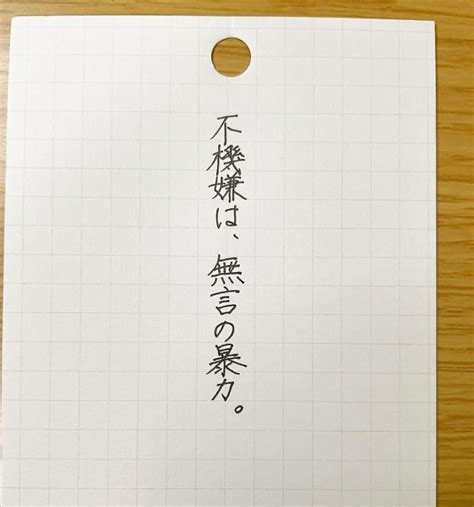 不機嫌は、無言の暴力。